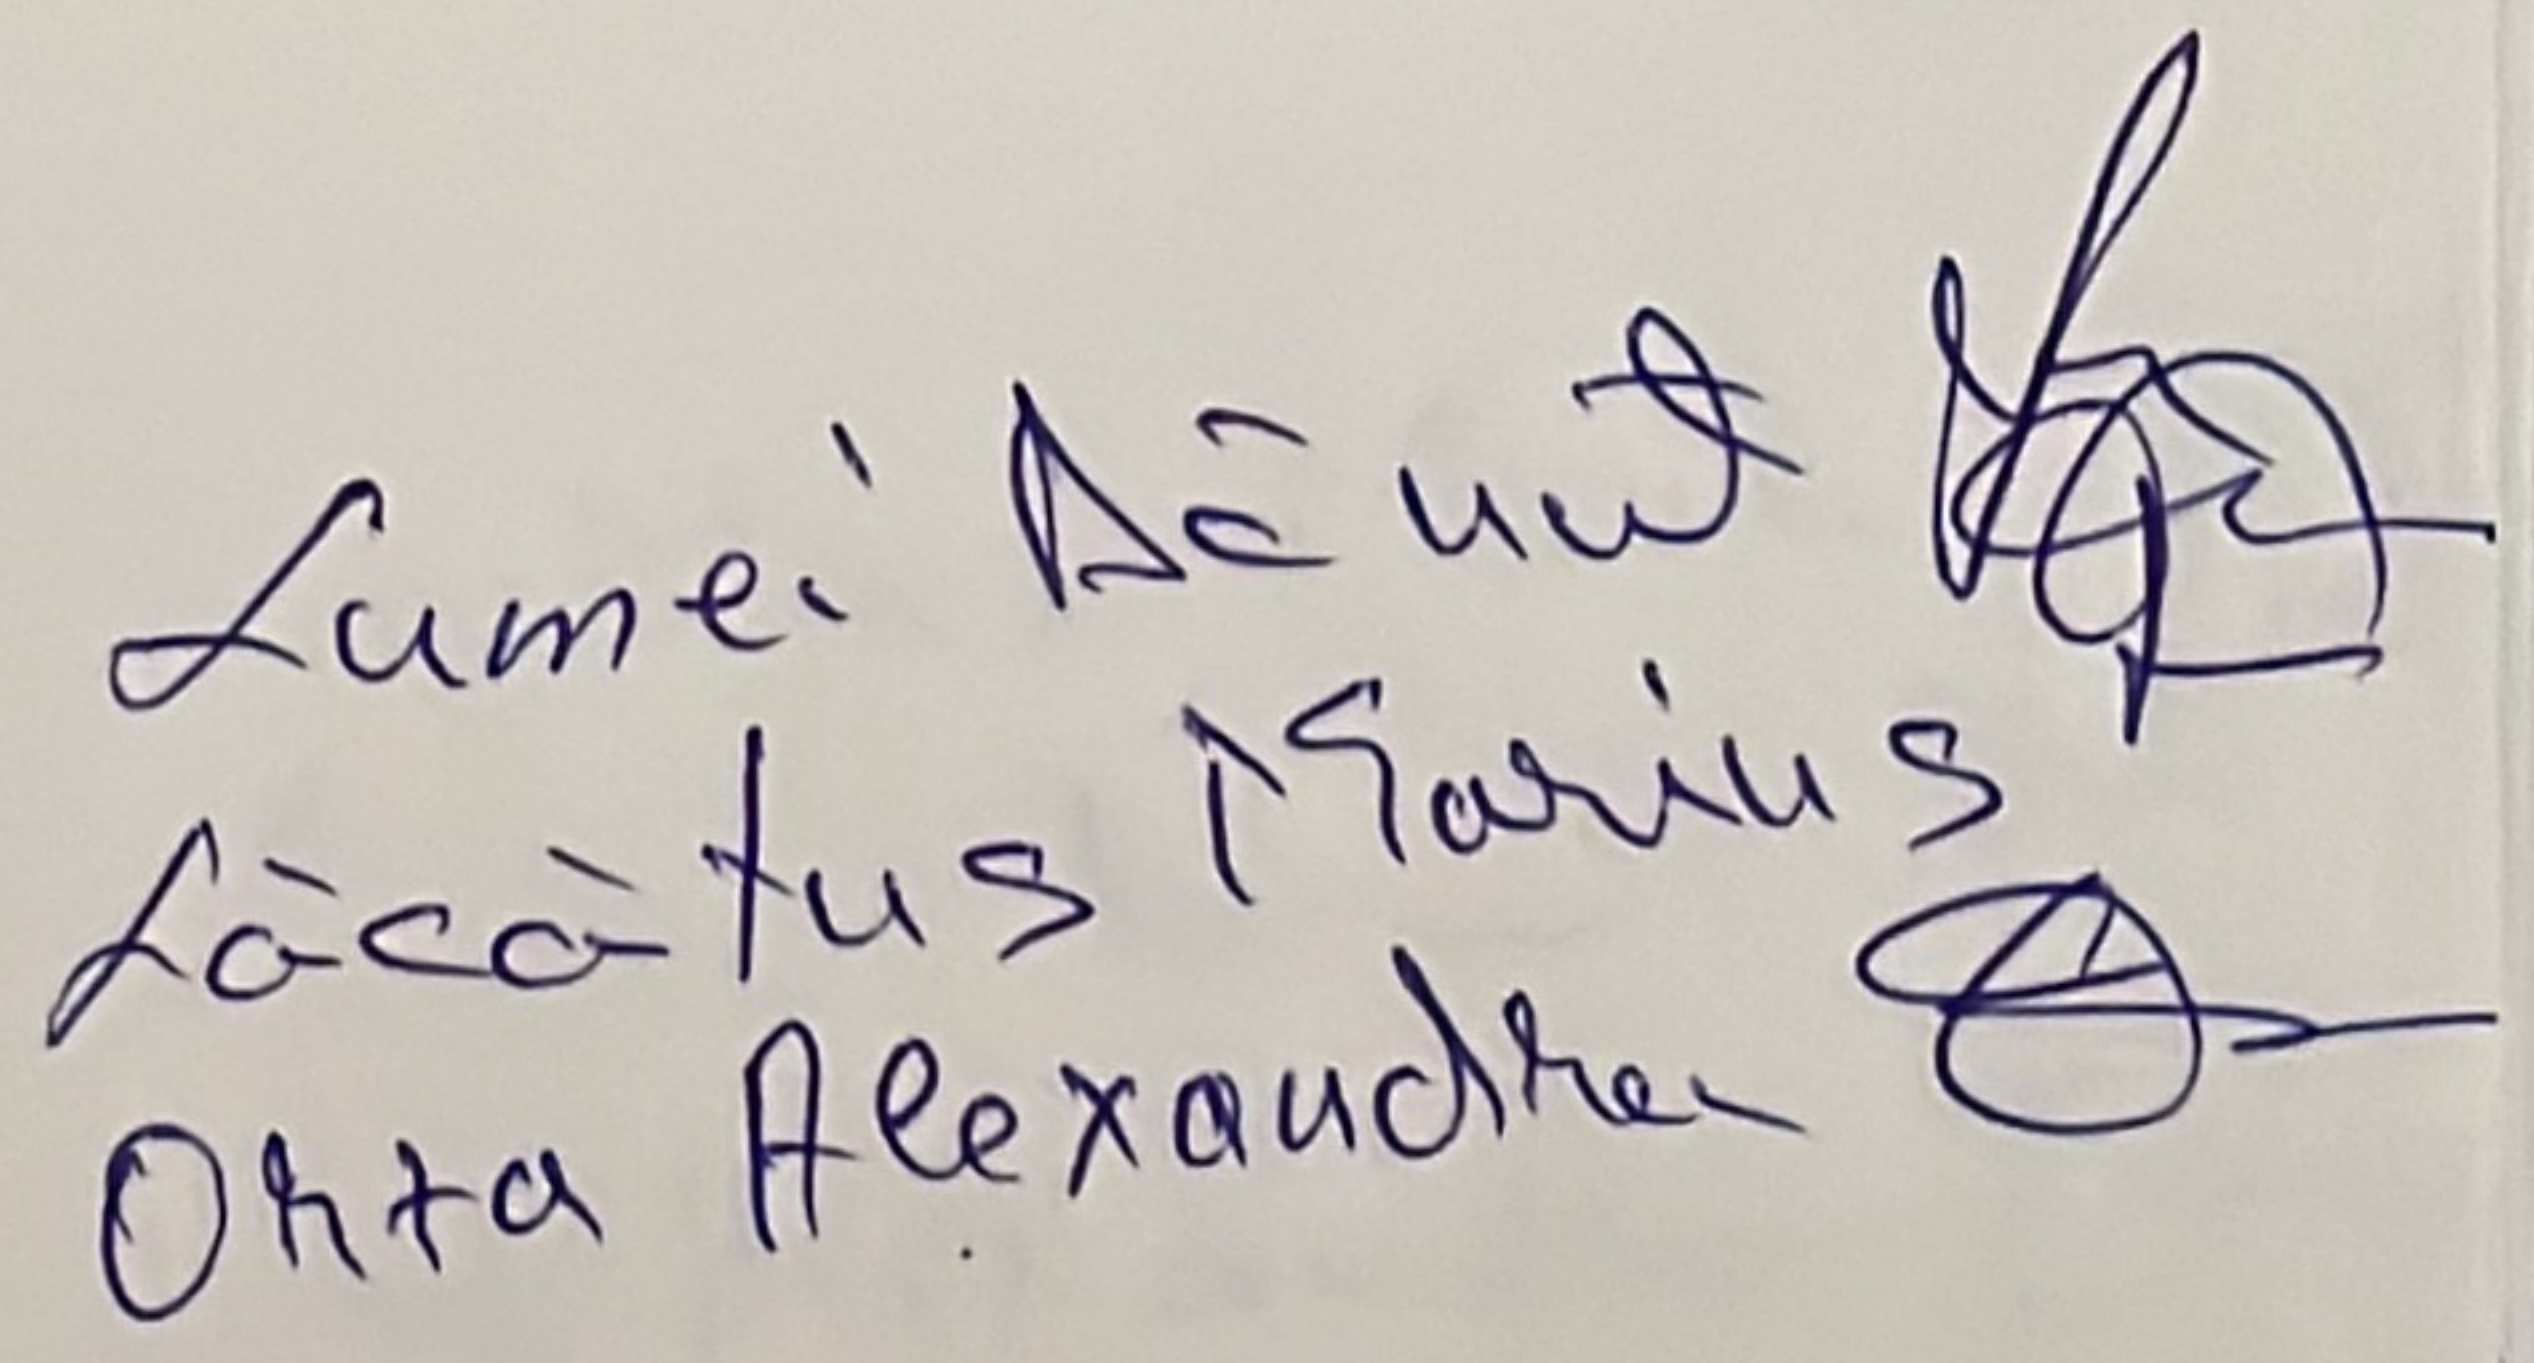 Lumei Dănuț
Lăcătus Marius
Orta Alexandra